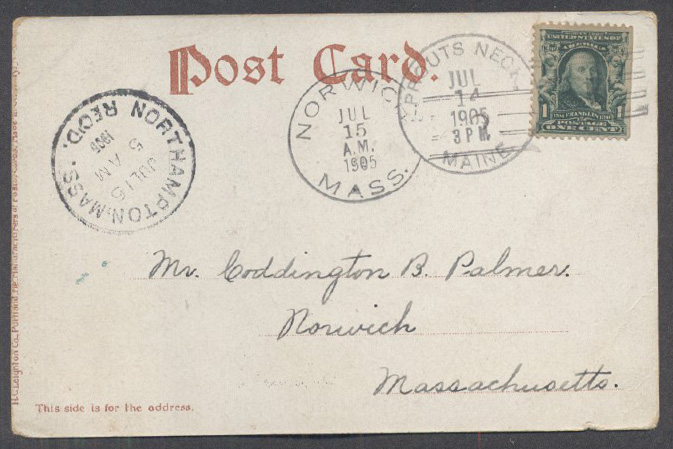 Post Card.
PROUTS NECK
JUL
14
1905
3 P M.
MAINE
NORWIC
JUL
15
A.M.
1905
MASS.
NORTHAMPTON, MASS.
REC'D.
JUL 15
5 AM
1905
UNITED STATES OF
AMERICA
1
FRANKLIN
POSTAGE
ONE CENT
1
Mr. Coddington B. Palmer.
Norwich
Massachusetts.
This side is for the address.
H. C. Leighton Co., Portland, Me. Manufacturers of Postal Cards